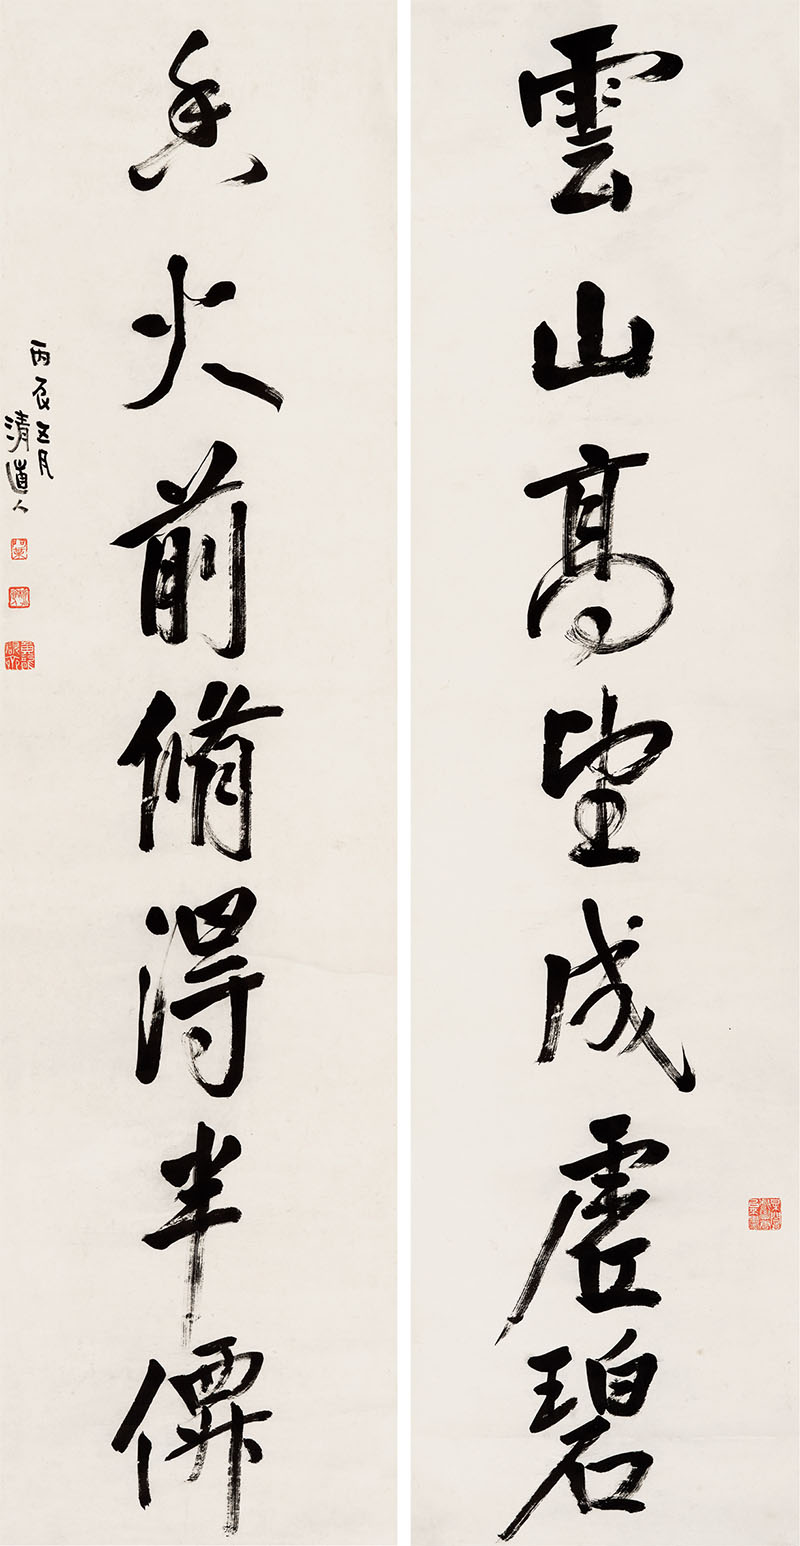 雲山高望成虛碧
香火前脩得半僊
丙辰五月
清道人